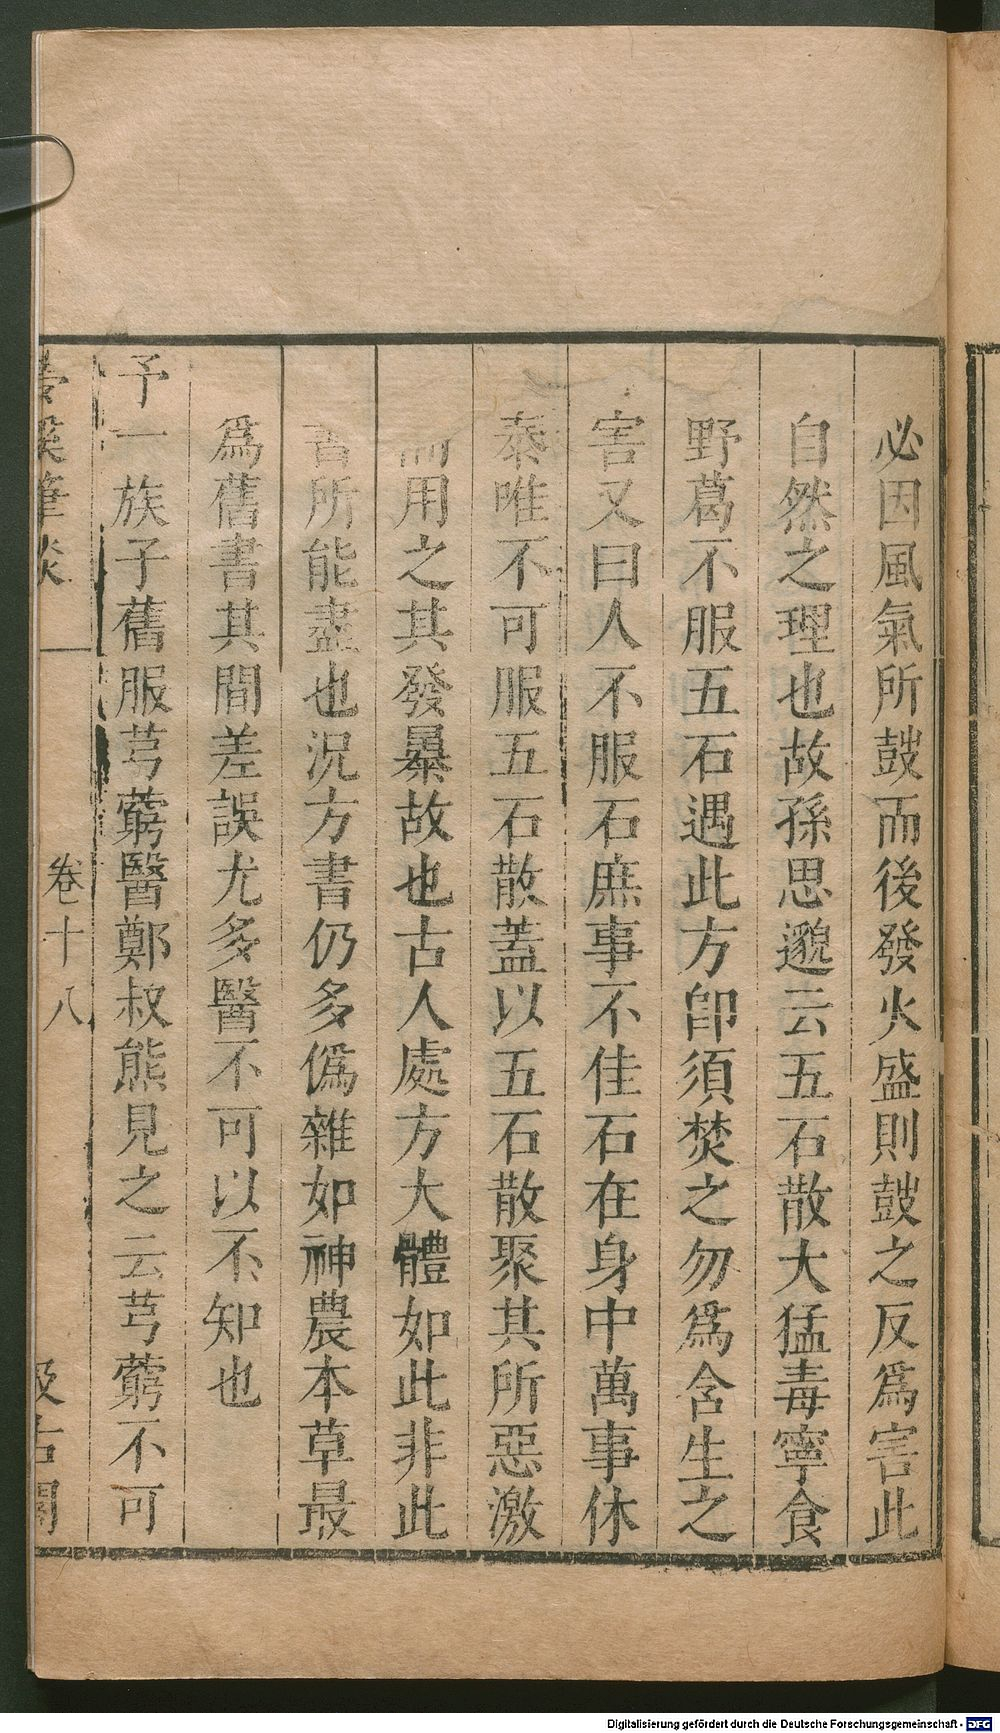 必因風氣所鼓而後發火盛則鼓之反爲害此
自然之理也故孫思邈云五石散大猛毒寧食
野葛不服五石遇此方卽須焚之勿爲含生之
害又曰人不服石庶事不佳石在身中萬事休
泰唯不可服五石散蓋以五石散聚其所惡激
而用之其發暴故也古人處方大體如此非此
書所能盡也況方書仍多僞雜如神農本草最
爲舊書其間差誤尤多醫不可以不知也
予一族子舊服芎藭醫鄭叔熊見之云芎藭不可
夢溪筆談 卷十八 汲古閣
Digitalisierung gefördert durch die Deutsche Forschungsgemeinschaft - DFG